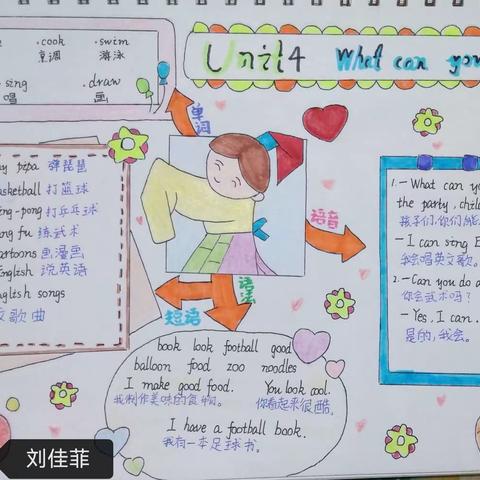 Unit4 What can you
.cook .swim
烹调 游泳
sing .draw
唱 画
单词
pipa 弹琵琶
basketball 打篮球
ping-pong 打乒乓球
kung fu 练武术
cartoons 画漫画
English 说英语
English songs
歌曲
语音
语法
短语
1.-What can you
the party, child
孩子们,你们能
-I can sing E
我会唱英文歌。
2.-Can you do a
你会武术吗?
-Yes, I can.
是的,我会。
book look football good
balloon food zoo noodles
I make good food. You look cool.
我制作美味的食物。 你看起来很酷。
I have a football book.
我有一本足球书。
刘佳菲